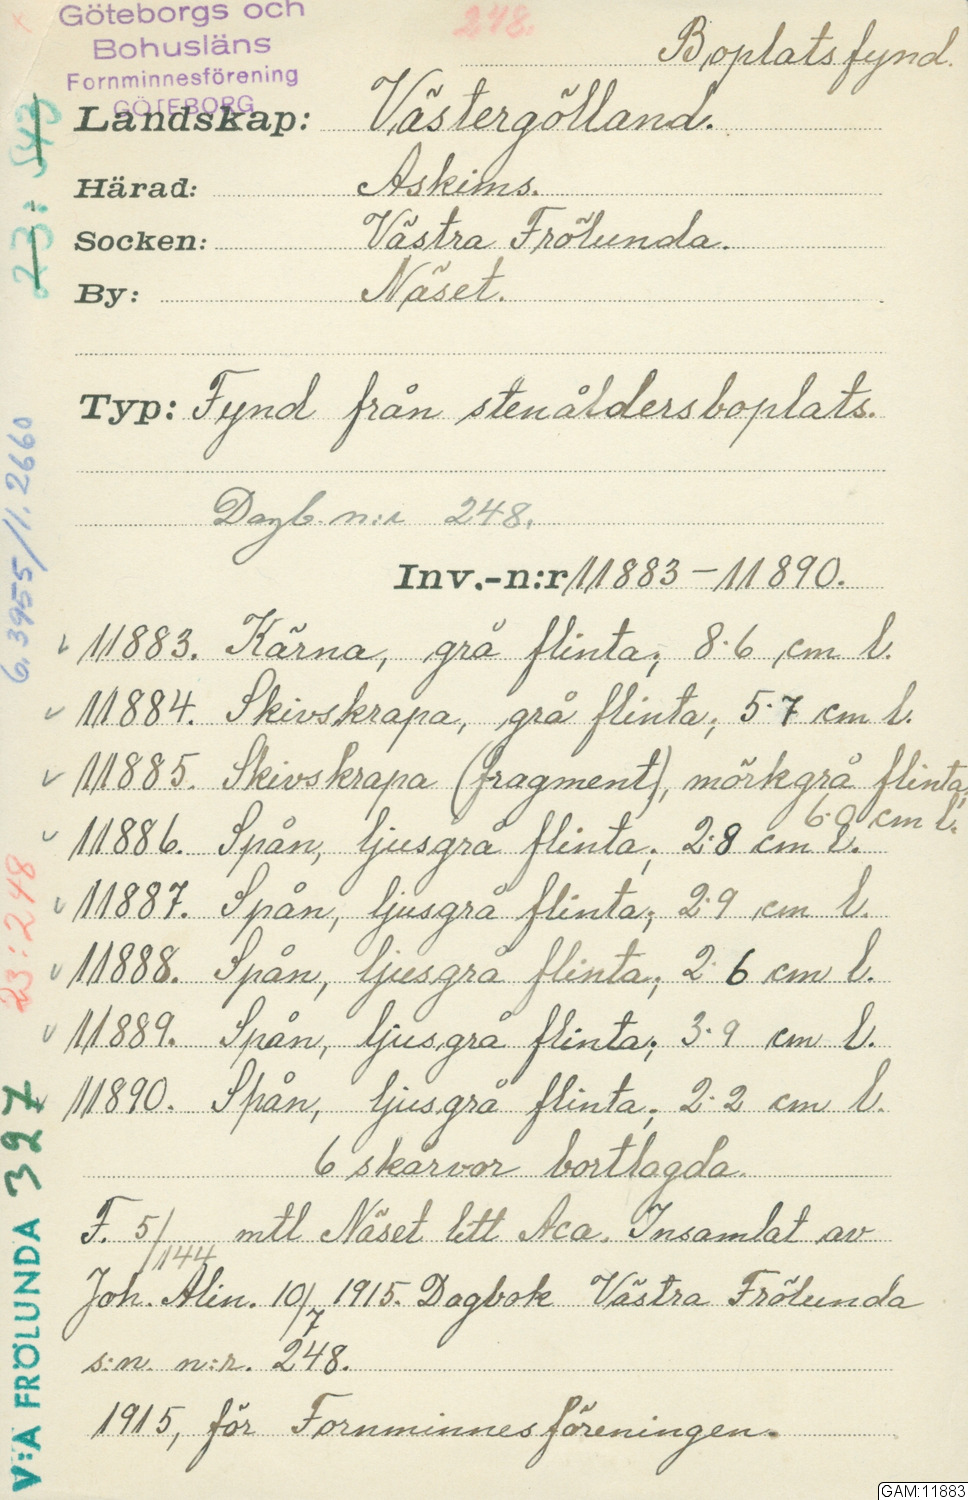 Göteborgs och
Bohusläns
Fornminnesförening
GÖTEBORG
248.
Boplatsfynd.
Landskap: Västergötland.
Härad: Askims.
Socken: Västra Frölunda.
By: Näset.
Typ: Fynd från stenåldersboplats.
Dagb. n:r 248.
Inv.-n:r 11883-11890.
11883. Kärna, grå flinta; 8.6 cm l.
11884. Skivskrapa, grå flinta; 5.7 cm l.
11885. Skivskrapa (fragment), mörkgrå flinta,
6.0 cm l.
11886. Spån, ljusgrå flinta; 2.8 cm l.
11887. Spån, ljusgrå flinta; 2.9 cm l.
11888. Spån, ljusgrå flinta; 2.6 cm l.
11889. Spån, ljusgrå flinta; 3.9 cm l.
11890. Spån, ljusgrå flinta; 2.2 cm l.
6 skärvor bortlagda.
F. 5/144 mtl Näset litt Aca. Insamlat av
Joh. Alin. 10/7 1915. Dagbok Västra Frölunda
s:n. n:r. 248.
1915, för Fornminnesföreningen.
23: 543
6.3955/1.2660
23:248
V:A FRÖLUNDA 397
GAM:11883